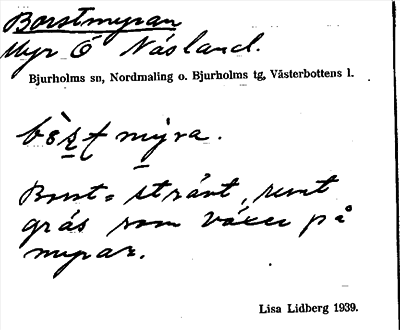 Borstmyran
Myr Ö Näsland.
Bjurholms sn, Nordmaling o. Bjurholms tg, Västerbottens l.
bòs̠t mỳra.
Borst = stråvt, runt
gräs som växer på
myrar.
Lisa Lidberg 1939.